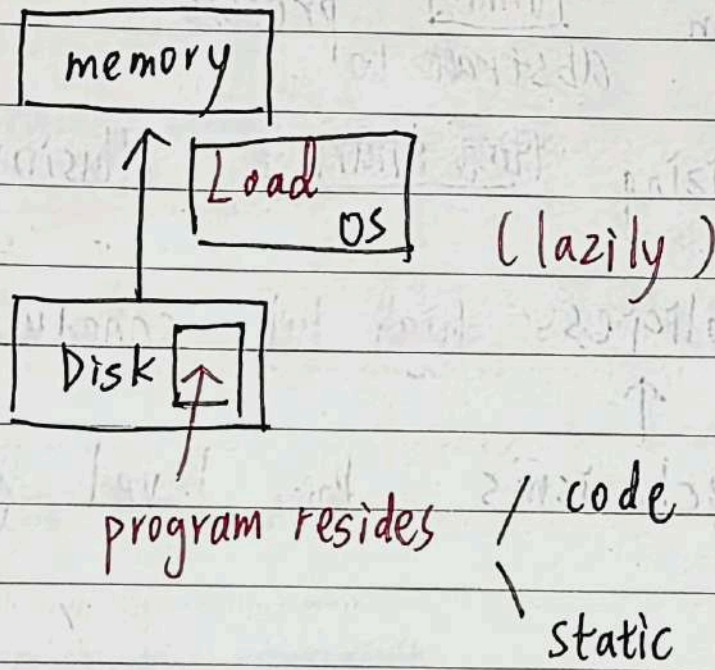 memory
Load
OS
(lazily)
Disk
program resides
code
static